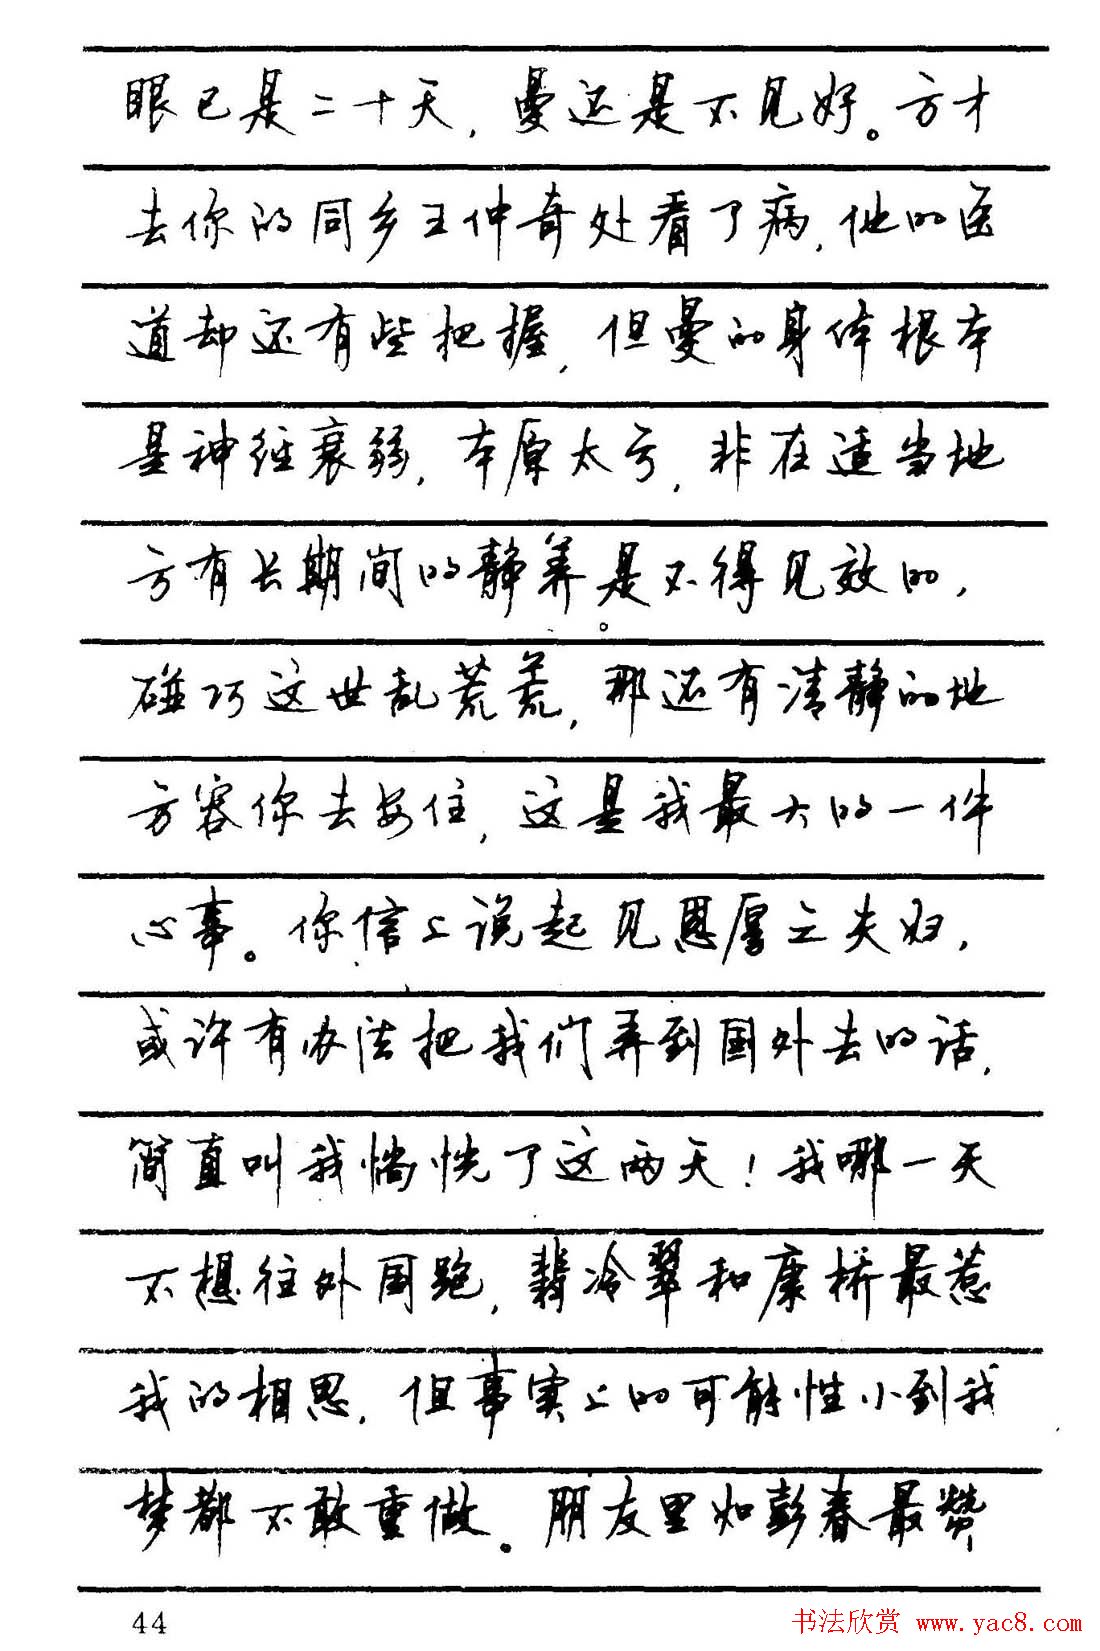 眼已是二十天，曼还是不见好。方才
去你的同乡王仲奇处看了病，他的医
道却还有些把握，但曼的身体根本
是神经衰弱，本原太亏，非在适当地
方有长期间的静养是不得见效的，
碰巧这世乱荒荒，那还有清静的地
方容你去安住，这是我最大的一件
心事。你信上说起见恩厚之夫妇，
或许有办法把我们弄到国外去的话，
简直叫我惝恍了这两天！我哪一天
不想往外国跑，翡冷翠和康桥最惹
我的相思，但事实上的可能性小到我
梦都不敢重做。朋友里如彭春最赞
44
书法欣赏 www.yac8.com